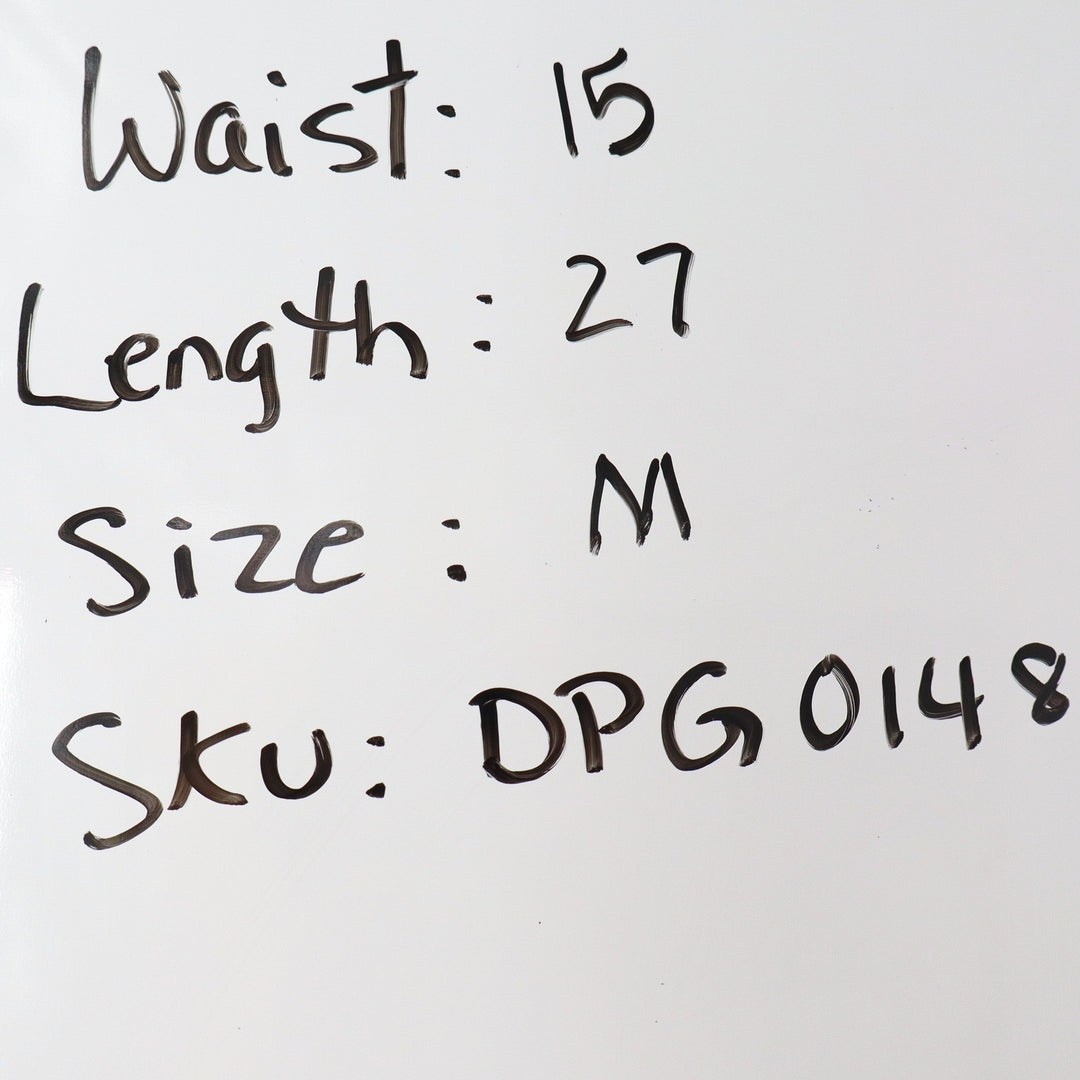 Waist: 15
Length: 27
Size: M
Sku: DPG 0148